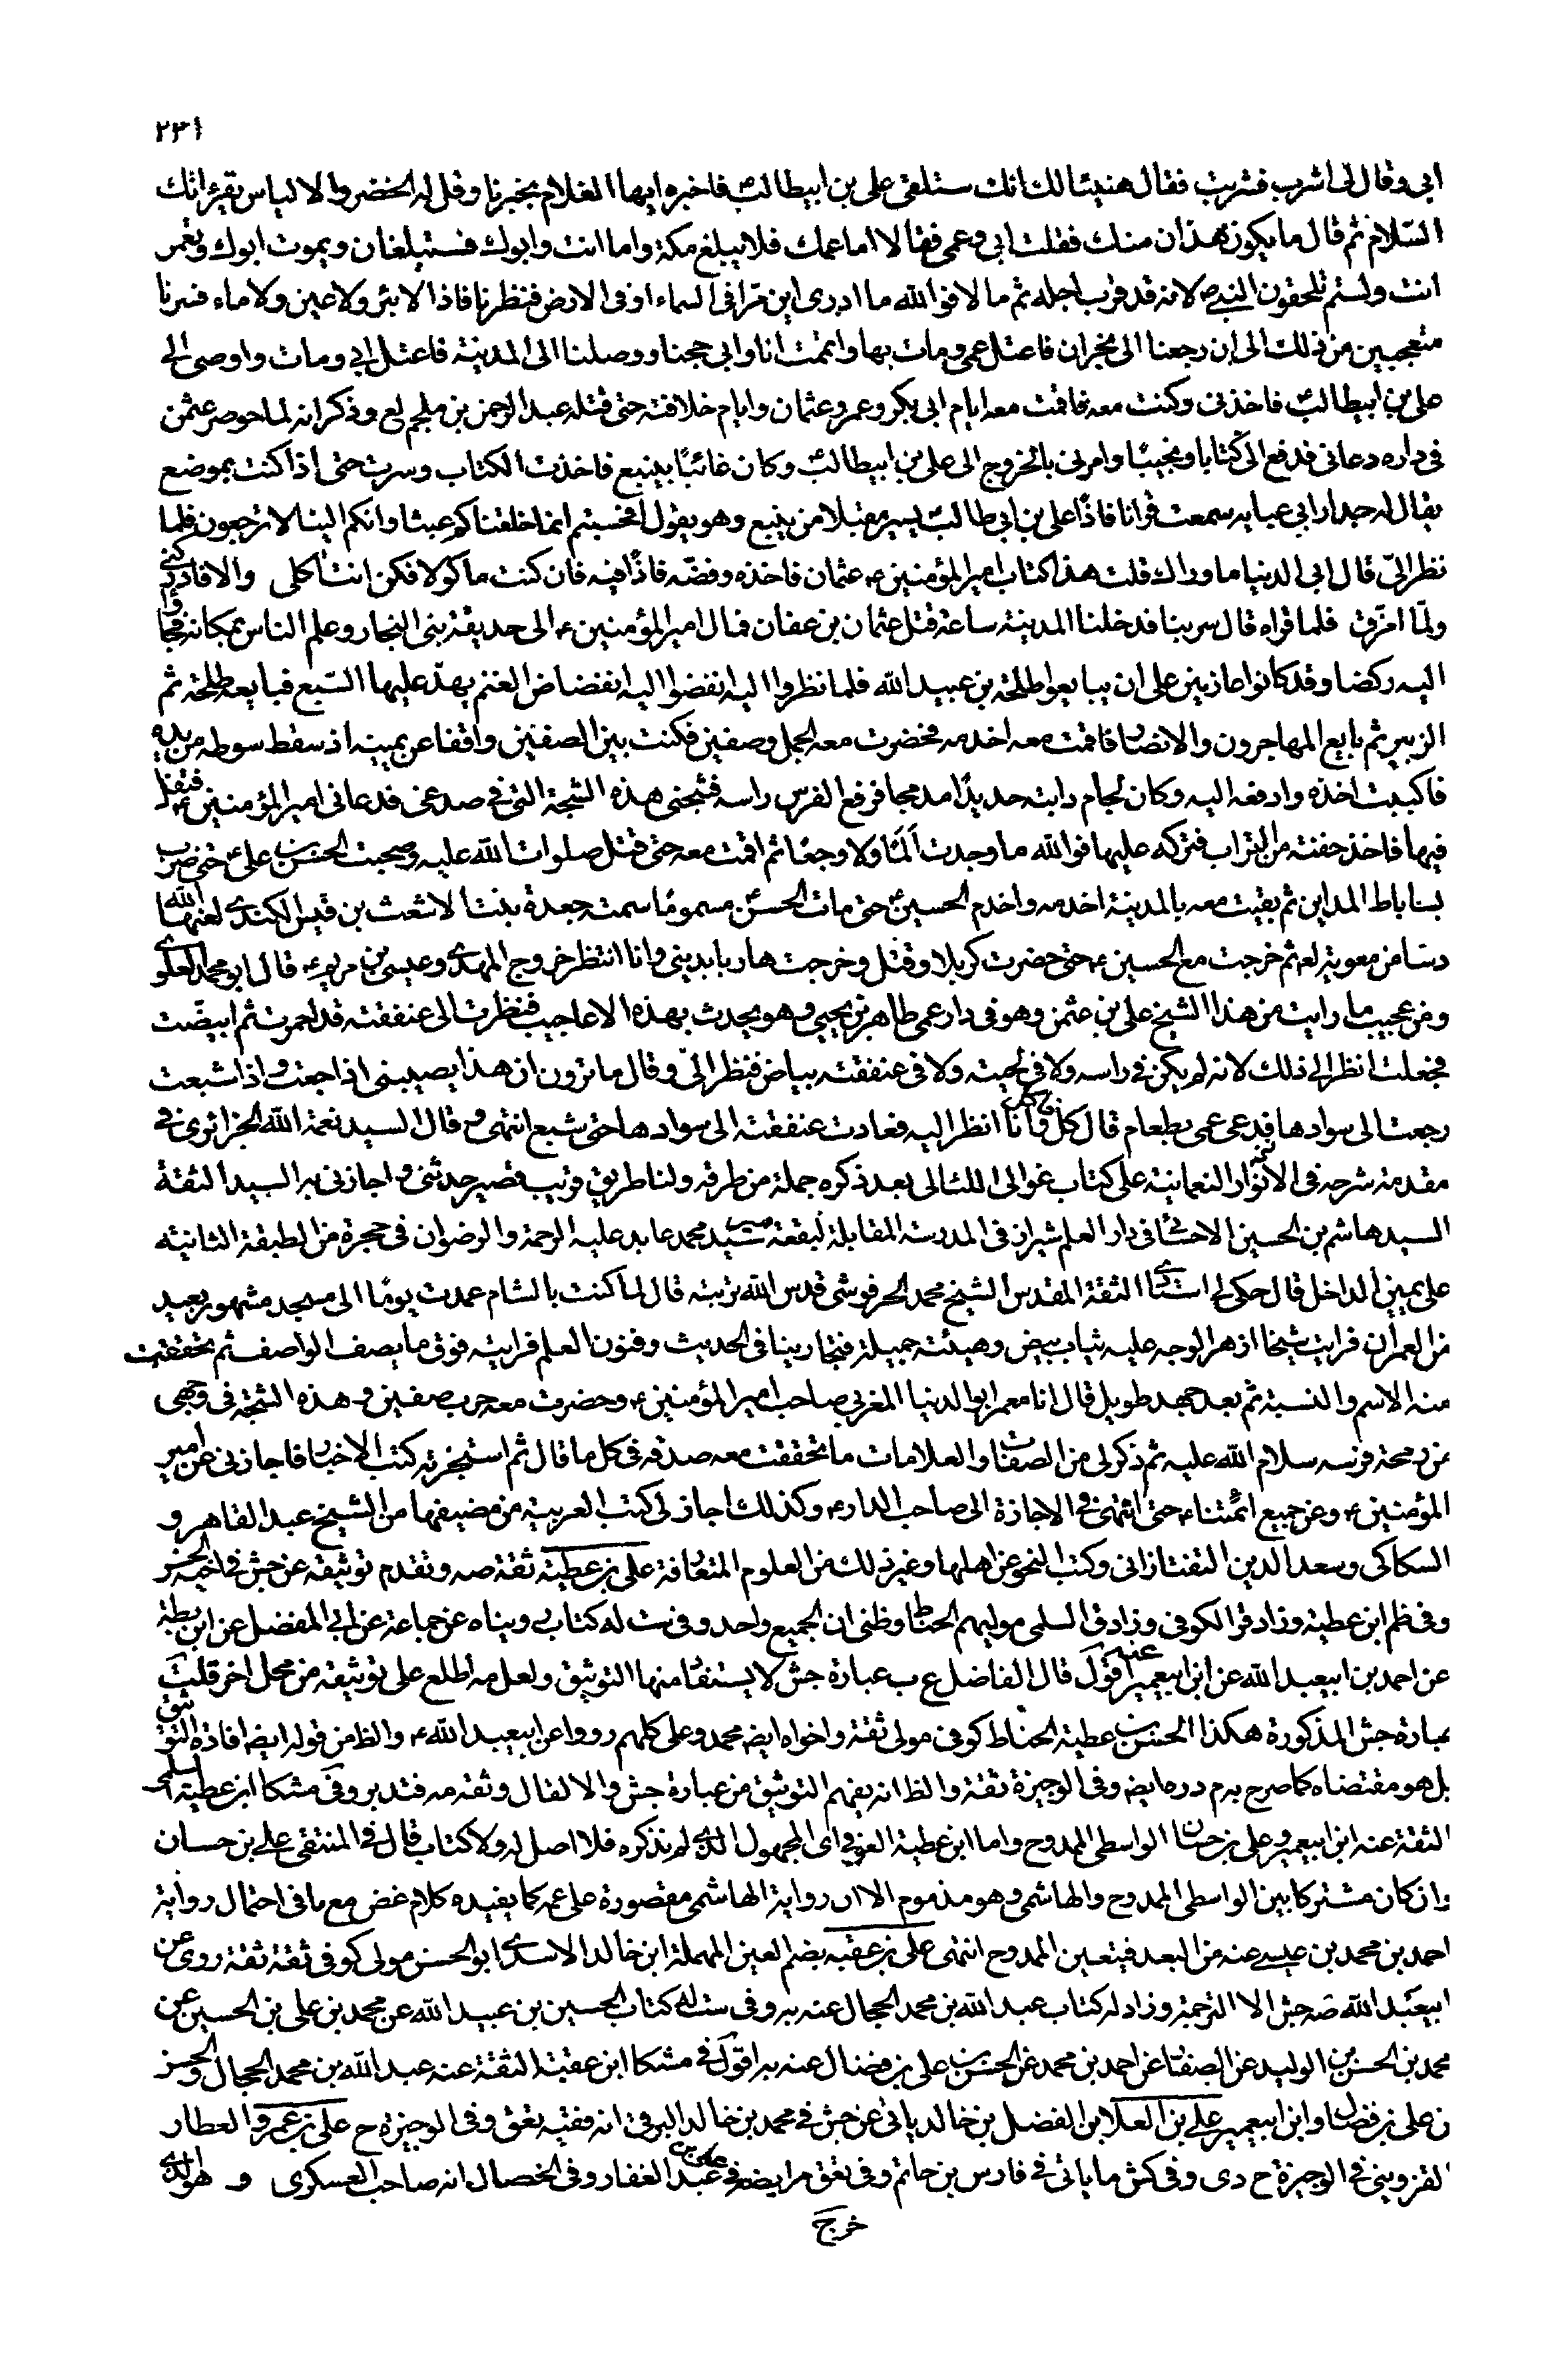 ٢٣١
ابي وقال لى اشرب فشربت فقال هنيئا لك انك ستلقى على بن ابيطالب ع فاخبره ايها الغلام بخبرنا وقل له الخضر والالياس يقرئانك
السّلام ثم قال ما يكون هذان منك فقلت ابى وعمى فقالا اما عمك فلا يبلغ مكة واما انت وابوك فستبلغان ويموت ابوك وتعمر
انت ولستم تلحقون النبى ص لانه قد قرب اجله ثم مالا فوالله ما ادرى اين مرّا فى السماء او فى الارض فنظرنا فاذا لا بئر ولا عين ولا ماء فسرنا
متعجبين من ذلك الى ان رجعنا الى نجران فاعتل عمى ومات بها واتممت انا وابى حجنا ووصلنا الى المدينة فاعتل ابي ومات واوصى الى
على بن ابيطالب ع فاخذنى وكنت معه فاقمت معه ايام ابى بكر وعمر وعثمان وايام خلافته حتى قتله عبد الرحمن بن ملجم لع وذكر انه لما حوصر عثمن
فى داره دعانى فدفع الىّ كتابا ونجيبًا وامرنى بالخروج الى على بن ابيطالب ع وكان غائبًا بينبع فاخذت الكتاب وسرت حتى اذا كنت بموضع
يقال له جدار ابي عبايه سمعت قرانا فاذًا على بن ابى طالب ع يسير مقبلا من ينبع وهو يقول افحسبتم انما خلقناكم عبثا وانكم الينا لا ترجعون فلما
نظر الىّ قال ابى الدنيا ما وراك قلت هذا كتاب امير المؤمنين ع عثمان فاخذه وفضّه فاذًا فيه فان كنت ماكولا فكن انت اكلى والا فادركنى
ولمّا امزّق فلما قراه قال سر بنا فدخلنا المدينة ساعة قتل عثمان بن عفان فمال امير المؤمنين ع الى حديقة بنى النجار وعلم الناس بمكانه فجاؤا
اليه ركضا وقد كانوا عازبين على ان يبايعوا طلحة بن عبيد الله فلما نظروا اليه انفضوا اليه انفضاض الغنم يهدّ عليها السّبع فبايعه طلحة ثم
الزبير ثم بايع المهاجرون والانصار فاقمت معه اخدمه فحضرت معه الجمل وصفين فكنت بين الصفين واقفا عن يمينه اذ سقط سوطه من يده
فاكببت اخذه وادفعه اليه وكان لجام دابته حديدًا مدمجا فرفع الفرس راسه فشجنى هذه الشجة التى فى صدغى فدعانى امير المؤمنين ع فتفل
فيها فاخذ حفنة من التراب فتركه عليها فوالله ما وجدت ألمًا ولا وجعًا ثم اقمت معه حتى قتل صلوات الله عليه وصحبت الحسن بن على ع حتى ضرب
بساباط المداين ثم بقيت معه بالمدينة اخدمه واخدم الحسين ع حتى مات الحسن ع مسمومًا سمته جعدة بنت الاشعث بن قيس الكندى لعنهما الله
دسا من معوية لع ثم خرجت مع الحسين ع حتى حضرت كربلا وقتل وخرجت هاربا بدينى وانا انتظر خروج المهدى وعيسى بن مريم ع قال ابو محمد العلوى
ومن عجيب ما رايت من هذا الشيخ على بن عثمن وهو فى دار عمى طاهر بن يحيى وهو يحدث بهذه الاعاجيب فنظرت الى عنفقته قد احمرت ثم ابيضّت
فجعلت انظر الى ذلك لانه لم يكن فى راسه ولا فى لحيته ولا فى عنفقته بياض فنظر الىّ وقال ما ترون ان هذا يصيبنى اذا جعت واذا شبعت
رجعت الى سوادها فدعى عمى بطعام قال كل وانا انظر اليه فعادت عنفقته الى سوادها حتى شبع انتهى وقال السيد نعمة الله الجزائرى فى
مقدمة شرحه فى الانوار النعمانية على كتاب غوالى اللئالى بعد ذكره جملة من طرقه ولنا طريق قريب قصير حدثنى واجازنى به السيد الثقة
السيد هاشم بن الحسين الاحسائى فى دار العلم شيراز فى المدرسة المقابلة لبقعة سيد محمد عابد عليه الرحمة والرضوان فى حجرة من الطبقة الثانية
على يمين الداخل قال حكى لى استاذى الثقة المقدس الشيخ محمد الحرفوشى قدس الله تربته قال لما كنت بالشام عمدت يومًا الى مسجد مشهور بعيد
من العمران فرايت شيخا ازهر الوجه عليه ثياب بيض وهيئة جميلة فتجارينا فى الحديث وفنون العلم فرايته فوق ما يصف الواصف ثم تحققت
منه الاسم والنسبة ثم بعد جهد طويل قال انا معمر ابو الدنيا المغربى صاحب امير المؤمنين ع وحضرت معه حرب صفين وهذه الشجة فى وجهى
من رمحة فرسه سلام الله عليه ثم ذكر لى من الصفات والعلامات ما تحققت معه صدقه فى كل ما قال ثم استجزته كتب الاخبار فاجازنى عن امير
المؤمنين ع وعن جميع ائمّتنا ع حتى انتهى فى الاجازة الى صاحب الدار ع وكذلك اجاز لى كتب العربية من مصنفيها من الشيخ عبد القاهر و
السكاكى وسعد الدين التفتازانى وكتب النحو عن اهلها وغير ذلك من العلوم المتعارفة على بن عطية ثقة صه وتقدم توثيقه عن جش فى اخيه الحسن
وفى ظم ابن عطية وزاد قر الكوفى وزاد ق السلمى موليهم الحناط وظنى ان الجميع واحد وفى ست له كتاب رويناه عن جماعة عن ابى المفضل عن ابن بطة
عن احمد بن ابيعبد الله عن ابن ابيعمير عنه اقول قال الفاضل ع ب عبارة جش لا يستفاد منها التوثيق ولعل مه اطلع على توثيقه من محل اخر قلت
عبارة جش المذكورة هكذا الحسن بن عطية الحناط كوفى مولى ثقة واخواه ايضه محمد وعلى كلهم رووا عن ابيعبد الله ع والظ من قوله ايضه افادة التوثيق
بل هو مقتضاه كما صرح به م د ره ايضه وفى الوجيزة ثقة والظ انه يفهم التوثيق من عبارة جش والا لقال وثقه مه فتدبر وفى مشكا ابن عطية السلمى
الثقة عنه ابن ابيعمير وعلى بن حسان الواسطى الممدوح واما ابن عطية العوفى اى المجهول الذى لم نذكره فلا اصل له ولا كتاب قال فى المنتقى على بن حسان
وان كان مشتركا بين الواسطى الممدوح والهاشمى وهو مذموم الا ان رواية الهاشمى مقصورة على عمه كما يفيده كلام غض مع ما فى احتمال رواية
احمد بن محمد بن عيسى عنه من البعد فيتعين الممدوح انتهى على بن عقبه بضم العين المهملة ابن خالد الاسدى ابو الحسن مولى كوفى ثقة ثقة روى عن
ابيعبد الله صه جش الا الترجمة وزاد له كتاب عبد الله بن محمد الحجال عنه به وفى ست له كتاب الحسين بن عبيد الله عن محمد بن على بن الحسين عن
محمد بن الحسن بن الوليد عن الصفار عن احمد بن محمد عن الحسن بن على بن فضال عنه به اقول فى مشكا ابن عقبة الثقة عنه عبد الله بن محمد الحجال والحسن
بن على بن فضال وابن ابيعمير على بن العلا بن الفضل بن خالد ياتى عن جش فى محمد بن خالد البرقى انه فقيه تعق وفى الوجيزة ح على بن عمرو العطار
القزوينى فى الوجيزة ح دى وفى كش ما ياتى فى فارس بن حاتم وفى تعق مر ايضه فى على بن عبد الغفار وفى الخصال انه صاحب العسكرى و هو الذى
خرج